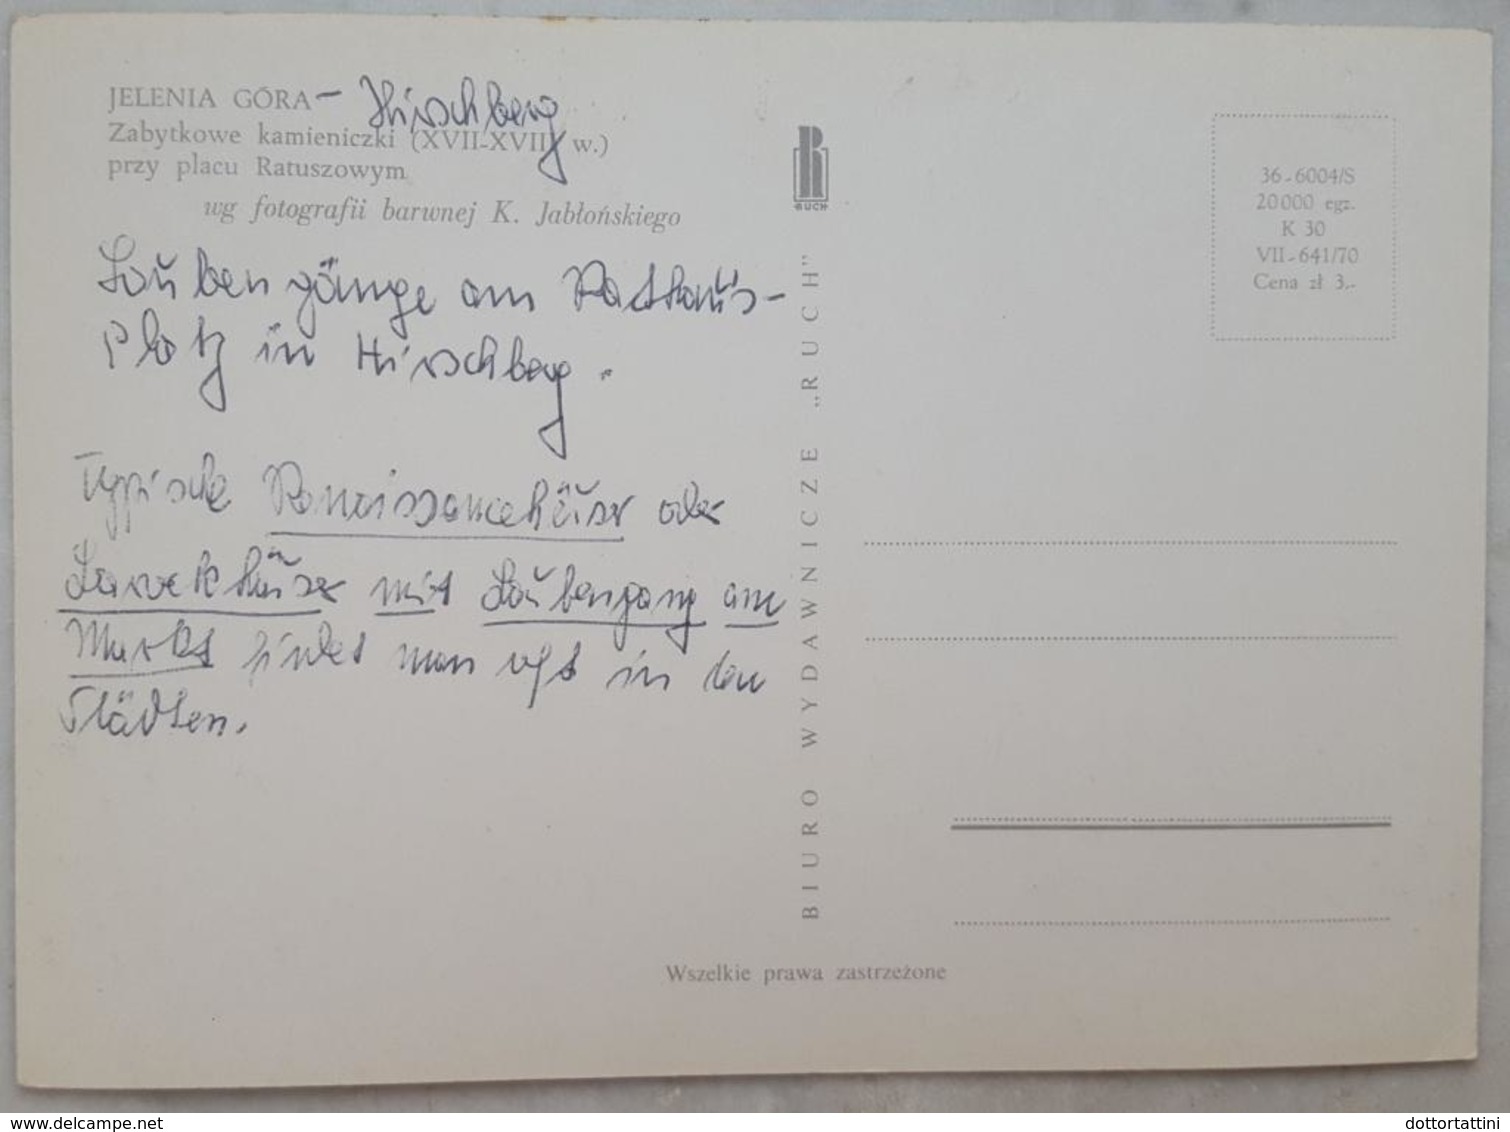 JELENIA GÓRA – Hirschberg
Zabytkowe kamieniczki (XVII-XVIII w.)
przy placu Ratuszowym
wg fotografii barwnej K. Jabłońskiego
Laubengänge am Rathaus-
Platz in Hirschberg.
Typische Renaissancehäuser oder
Barockhäuser mit Laubengang am
Markt findet man oft in den
Städten.
R
RUCH
BIURO WYDAWNICZE „RUCH”
36-6004/S
20000 egz.
K 30
VII-641/70
Cena zł 3.-
Wszelkie prawa zastrzeżone
delcampe.net
dottortattini